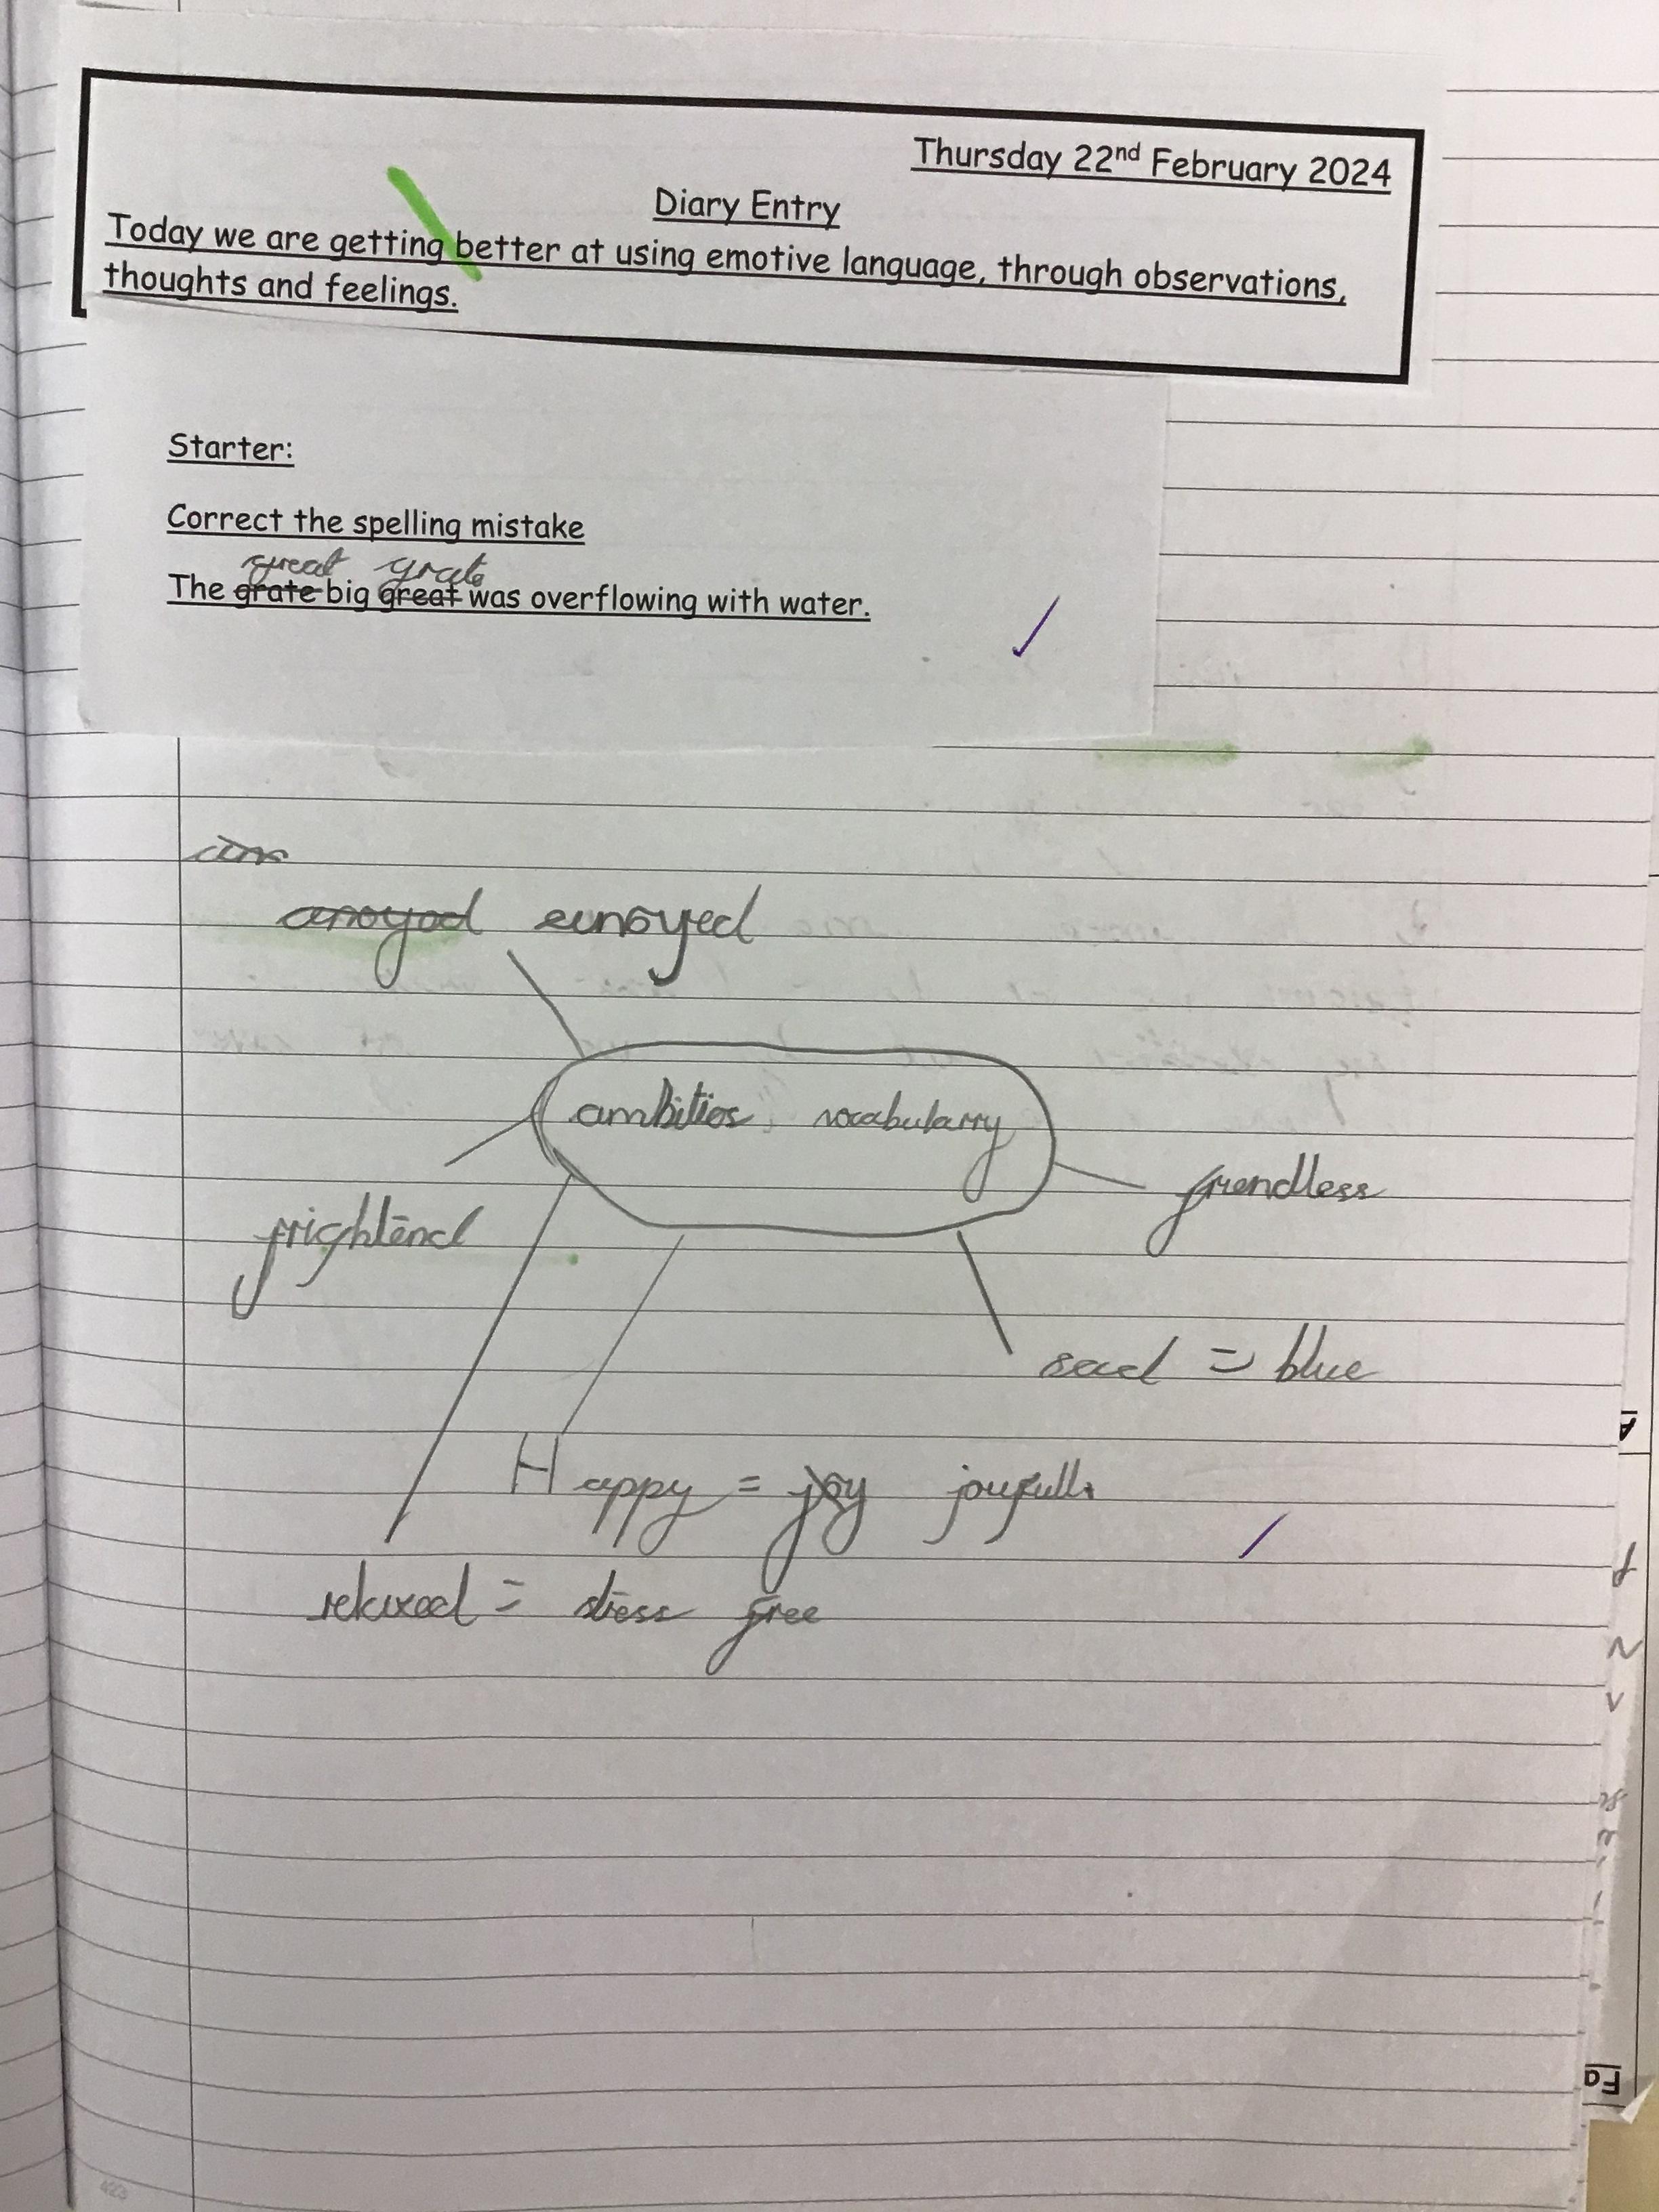 Thursday 22nd February 2024
Diary Entry
Today we are getting better at using emotive language, through observations,
thoughts and feelings.
Starter:
Correct the spelling mistake
great grate
The grate big great was overflowing with water.
anoyed
ambitios vocabularry
frendless
frightend
sad = blue
Happy = joy joyfull
relaxed = stress free
Fa